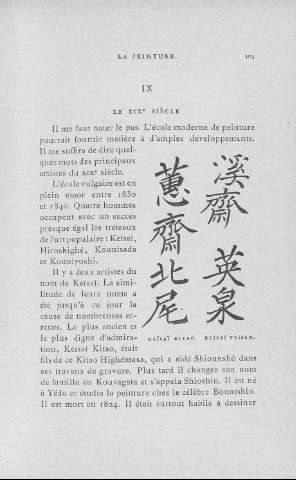 LA PEINTURE. 105
IX
LE XIXᵉ SIÈCLE
Il me faut hâter le pas. L'école moderne de peinture
pourrait fournir matière à d'amples développements.
Il me suffira de dire quel-
ques mots des principaux
artistes du XIXᵉ siècle.
L'école vulgaire est en
plein essor entre 1830
et 1840. Quatre hommes
occupent avec un succès
presque égal les tréteaux
de l'art populaire : Keïsaï,
Hiroshighé, Kounisada
et Kouniyoshi.
Il y a deux artistes du
nom de Keïsaï. La simi-
litude de leurs noms a
été jusqu'à ce jour la
cause de nombreuses er-
reurs. Le plus ancien et
le plus digne d'admira-
tion, Keïsaï Kitao, était
fils de ce Kitao Highémasa, qui a aidé Shiounshô dans
ses travaux de gravure. Plus tard il changea son nom
de famille en Kouvagata et s'appela Shioshin. Il est né
à Yédo et étudia la peinture chez le célèbre Bountshin.
Il est mort en 1824. Il était surtout habile à dessiner
溪齋英泉
蕙齋北尾
KEÏSAÏ KITAO. KEÏSAÏ YEISEN.